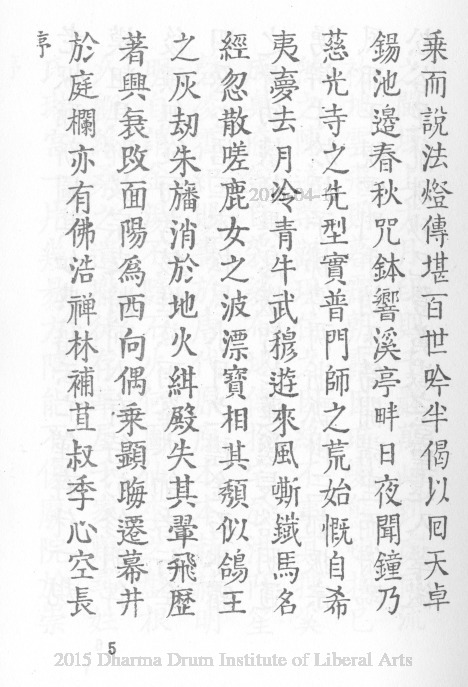 乘而說法燈傳堪百世吟半偈以囘天卓
錫池邉春秋咒鉢響溪亭畔日夜聞鐘乃
慈光寺之先型實普門師之荒始慨自希
夷夢去月冷青牛武穆遊來風嘶鐵馬名
經忽散嗟鹿女之波漂寶相其頽似鴿王
之灰刼朱旛消於地火紺殿失其翬飛歴
著興衰改面陽爲西向偶乘顯晦遷幕井
於庭欄亦有佛浩禅林補苴叔季心空長
序
5
2015 Dharma Drum Institute of Liberal Arts